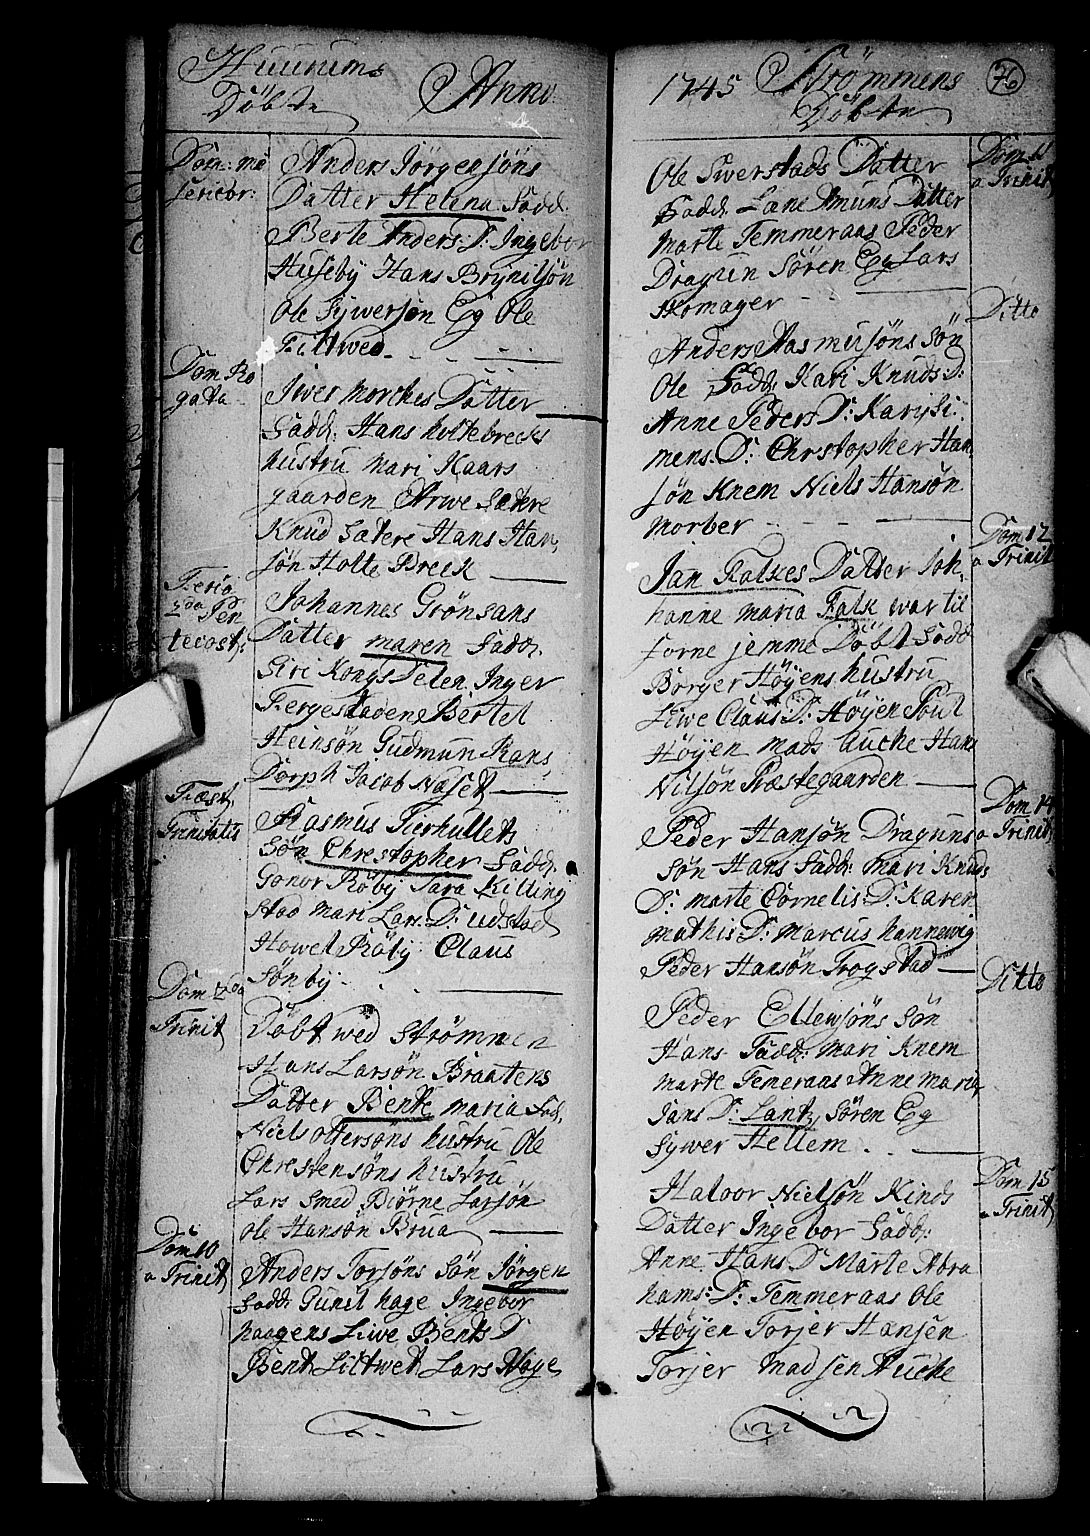 Huurums Anno
Döbte
Dom: mi
sericor:
Anders Jörgensöns
Datter Helena Fadd:
Berte Anders: D: Ingebor
Huseby Hans Brynilsön
Ole Sywersön Eg Ole
Filtwed
Dom Ro
gata
Iwer Morches Datter
Fadd: Hans holtebrecks
hustru Mari Kaars
gaarden Arwe Sætere
Knud Sætere Hans Han
sön Holte Breck
Feria
2da Pen
tecost:
Johannes Grönsans
Datter maren Fadd:
Siri Kongsdelen Inger
Fergestaden Bertel
Heinsön Gudmun Rans
Dorph Jacob Næset
Fæst:
Trinitatis
Rasmus Tierhullets
Sön Chrestopher Fadd:
Gonor Röby Sara Killing
stad Mari Lar: D: udstad
Howel Röby Claus
Sönby
Dom 2da
Trinit
Döbt wed Strömmen
Hans Larsön Braatens
Datter Bente maria Fad:
Niels ottersöns hustru Ole
Chrestensöns hustru
Lars Smed Biörne Larsön
Ole Hansön Brua
Dom 10
a Trinit
Anders Torsöns Sön Jörgen
Fadd: Gunil hage Ingebor
haagens Liwe Bents D
Bent Filtwet Lars Hage
1745 Strömmens 76
Döbte
Dom 11
a Trinit
Ole Swerstads Datter
Fadd: Lane Amuns Datter
Marte Temmeraas Peder
Dragun Sören Eg Lars
Homager
Ditto
Anders Rasmusöns Sön
Ole Fadd: Kari Knuds: D:
Anne Peders D: Kari Si:
mens: D: Chrstopher Han
sön Knem Niels Hansön
Morber
Dom 12
a Trinit
Jan Falkes Datter Joh
hanne maria Falk war til
forne jemme Döbt Fadd
Börger Höyens hustru
Liwe Claus: D: Höyen Poul
Höyen Mads Aucke Hans
Nilsön Præstegaarden
Dom 14
a Trinit
Peder Hansön Draguns
Sön Hans Fadd: mari Knuds
D: marte Cornelis: D: Karen
Mathis D: Marcus hannewig
Peder Hansön Trogstad
Ditto
Peder Ellewsöns Sön
Hans Fadd: Mari Knem
Marte Temeraas Anne Maria
Jans D: Lantz Sören Eg
Sywer Hellem
Dom 15
a Trinit
Haloor Nielsön Kinds
Datter Ingebor Fadd:
Anne Hans D Marte Abra
hams: D: Temmeraas Ole
Höyen Torjer Hansen
Torjer Madsen Aucke